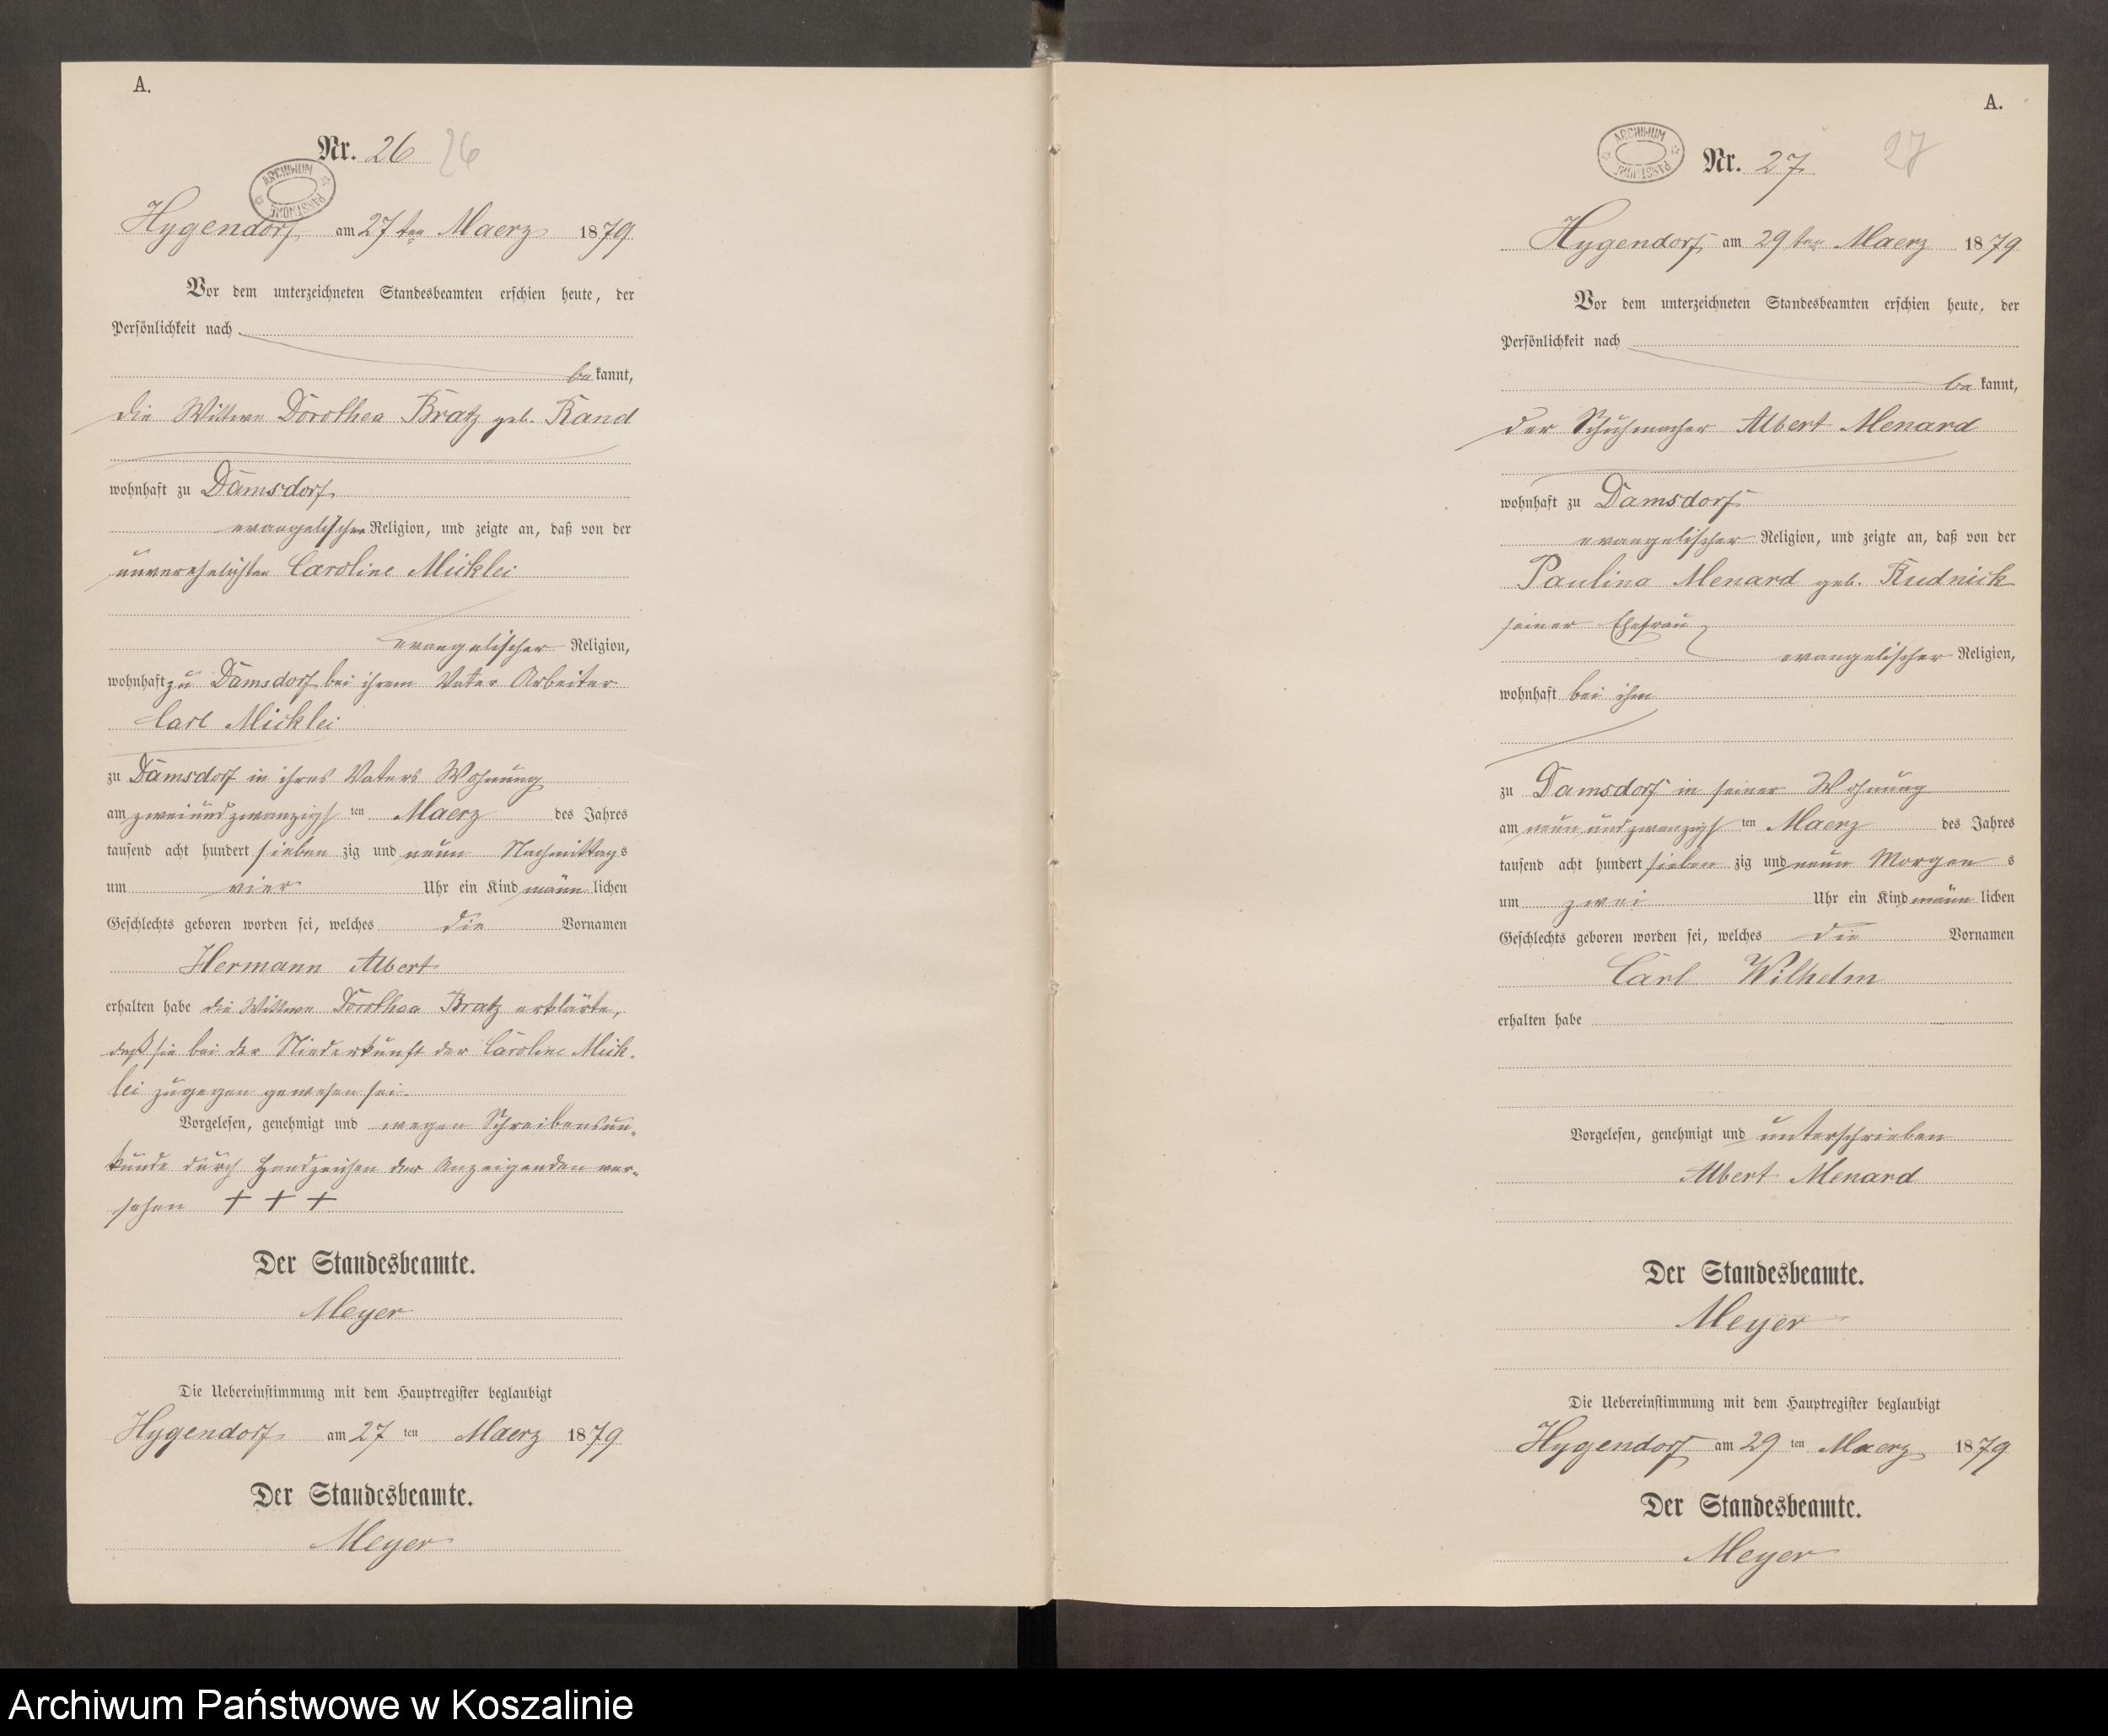 A.
Nr. 26 26
ARCHIWUM PAŃSTWOWE
Hygendorf am 27ten Maerz 1879
Vor dem unterzeichneten Standesbeamten erschien heute, der
Persönlichkeit nach
be kannt,
die Wittwe Dorothea Bratz geb. Rand
wohnhaft zu Damsdorf
evangelischer Religion, und zeigte an, daß von der
unverehelichten Caroline Micklei
evangelischer Religion,
wohnhaft zu Damsdorf bei ihrem Vater Arbeiter
Carl Micklei
zu Damsdorf in ihres Vaters Wohnung
am zweiundzwanzigs ten Maerz des Jahres
tausend acht hundert sieben zig und neun Nachmittags
um vier Uhr ein Kind männ lichen
Geschlechts geboren worden sei, welches die Vornamen
Hermann Albert
erhalten habe die Wittwe Dorothea Bratz erklärte,
daß sie bei der Niederkunft der Caroline Mick-
lei zugegen gewesen sei.
Vorgelesen, genehmigt und wegen Schreibensun-
kunde durch Handzeichen der Anzeigenden ver-
sehen + + +
Der Standesbeamte.
Meyer
Die Uebereinstimmung mit dem Hauptregister beglaubigt
Hygendorf am 27 ten Maerz 1879
Der Standesbeamte.
Meyer
A.
ARCHIWUM PAŃSTWOWE
Nr. 27. 27
Hygendorf am 29ten Maerz 1879
Vor dem unterzeichneten Standesbeamten erschien heute, der
Persönlichkeit nach
be kannt,
der Schuhmacher Albert Menard
wohnhaft zu Damsdorf
evangelischer Religion, und zeigte an, daß von der
Paulina Menard geb. Rudnick
seiner Ehefrau
evangelischer Religion,
wohnhaft bei ihm
zu Damsdorf in seiner Wohnung
am neun und zwanzigs ten Maerz des Jahres
tausend acht hundert sieben zig und neun Morgen s
um zwei Uhr ein Kind männ lichen
Geschlechts geboren worden sei, welches die Vornamen
Carl Wilhelm
erhalten habe
Vorgelesen, genehmigt und unterschrieben
Albert Menard
Der Standesbeamte.
Meyer
Die Uebereinstimmung mit dem Hauptregister beglaubigt
Hygendorf am 29 ten Maerz 1879
Der Standesbeamte.
Meyer
Archiwum Państwowe w Koszalinie